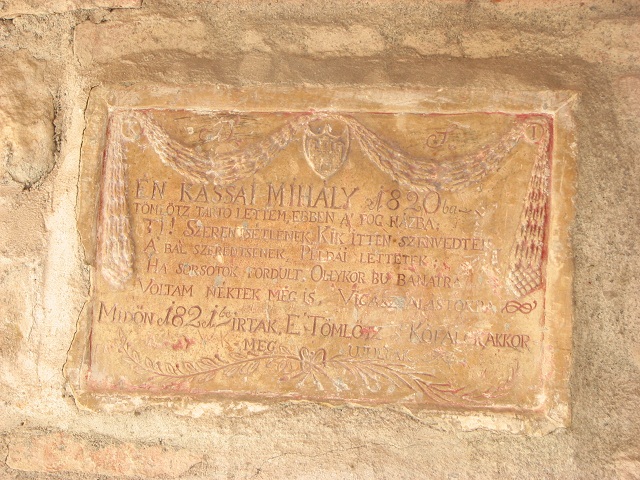 ÉN KASSAI MIHÁLY 1820ba
TÖMLÖTZ TARTÓ LETTEM, EBBEN A' FOG HÁZBA,
SZERENTSÉTLENEK, KIK ITTEN SZENVEDTEK
A BAL SZERENTSÉNEK, PÉLDÁI LETTETEK
HA SORSOTOK FORDULT, OLLYKOR BÚ BÁNATRA
VOLTAM NÉKTEK MÉG IS,
MIDŐN 1821be IRTAK, E' TÖMLÖTZ AKKOR
MEG